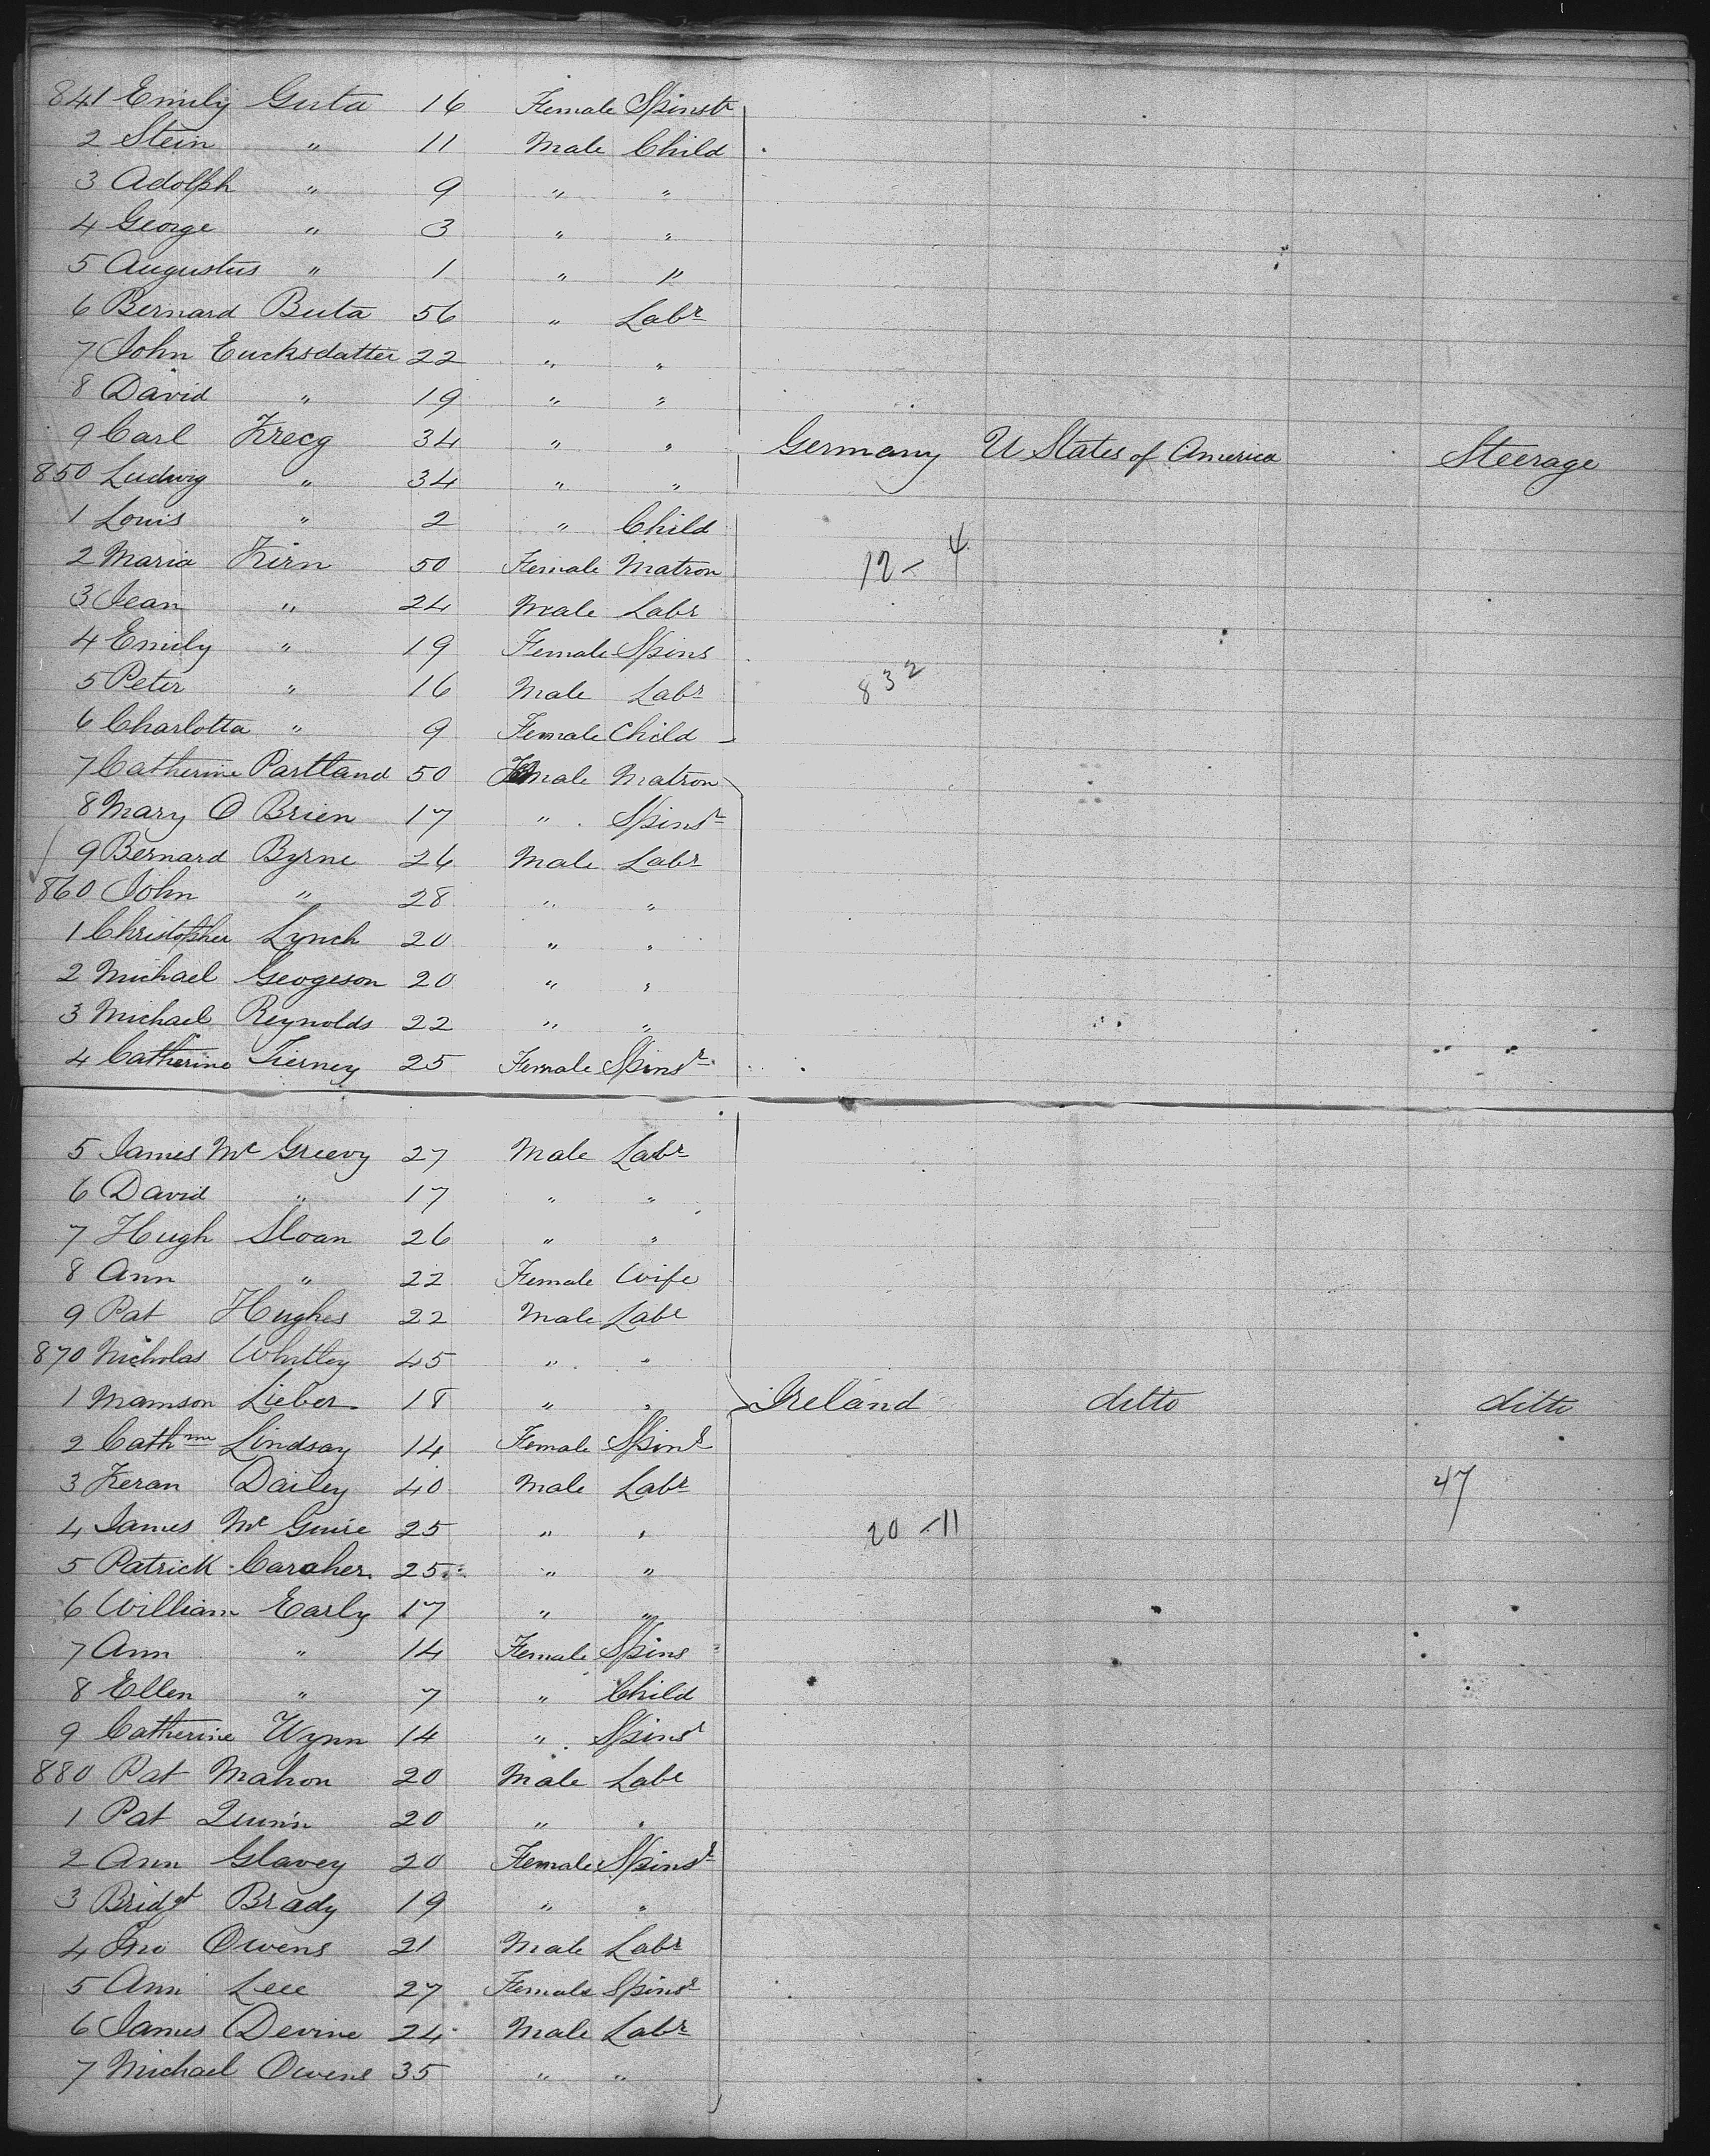 841 Emily Guta 16 Female Spinstr
2 Stein " 11 Male Child
3 Adolph " 9 " "
4 George " 3 " "
5 Augustus " 1 " "
6 Bernard Buta 56 " Labr
7 John Eucksdatter 22 " "
8 David " 19 " "
9 Carl Krecg 34 " " Germany U States of America Steerage
850 Ludwig " 34 " "
1 Louis " 2 " Child
2 Maria Kirn 50 Female Matron 12-4
3 Jean " 24 Male Labr
4 Emily " 19 Female Spins
5 Peter " 16 Male Labr 832
6 Charlotta " 9 Female Child
7 Catherine Partland 50 Female Matron
8 Mary O Brien 17 " Spinsr
9 Bernard Byrne 26 Male Labr
860 John " 28 " "
1 Christopher Lynch 20 " "
2 Michael Geogeson 20 " "
3 Michael Reynolds 22 " "
4 Catherine Tierney 25 Female Spinsr
5 James Mc Greevy 27 Male Labr
6 David " 17 " "
7 Hugh Sloan 26 " "
8 Ann " 22 Female Wife
9 Pat Hughes 22 Male Labr
870 Nicholas Whitley 45 " "
1 Mamson Lieber 18 " " Ireland ditto ditto
2 Cathrne Lindsay 14 Female Spinsr
3 Keran Dailey 40 Male Labr 47
4 James Mc Guire 25 " " 20-11
5 Patrick Caraher 25 " "
6 William Early 17 " "
7 Ann " 14 Female Spins
8 Ellen " 7 " Child
9 Catherine Wynn 14 " Spinsr
880 Pat Mahon 20 Male Labr
1 Pat Quinn 20 " "
2 Ann Glavey 20 Female Spinsr
3 Bridgt Brady 19 " "
4 Jno Owens 21 Male Labr
5 Ann Lee 27 Female Spinsr
6 James Devine 24 Male Labr
7 Michael Owens 35 " "